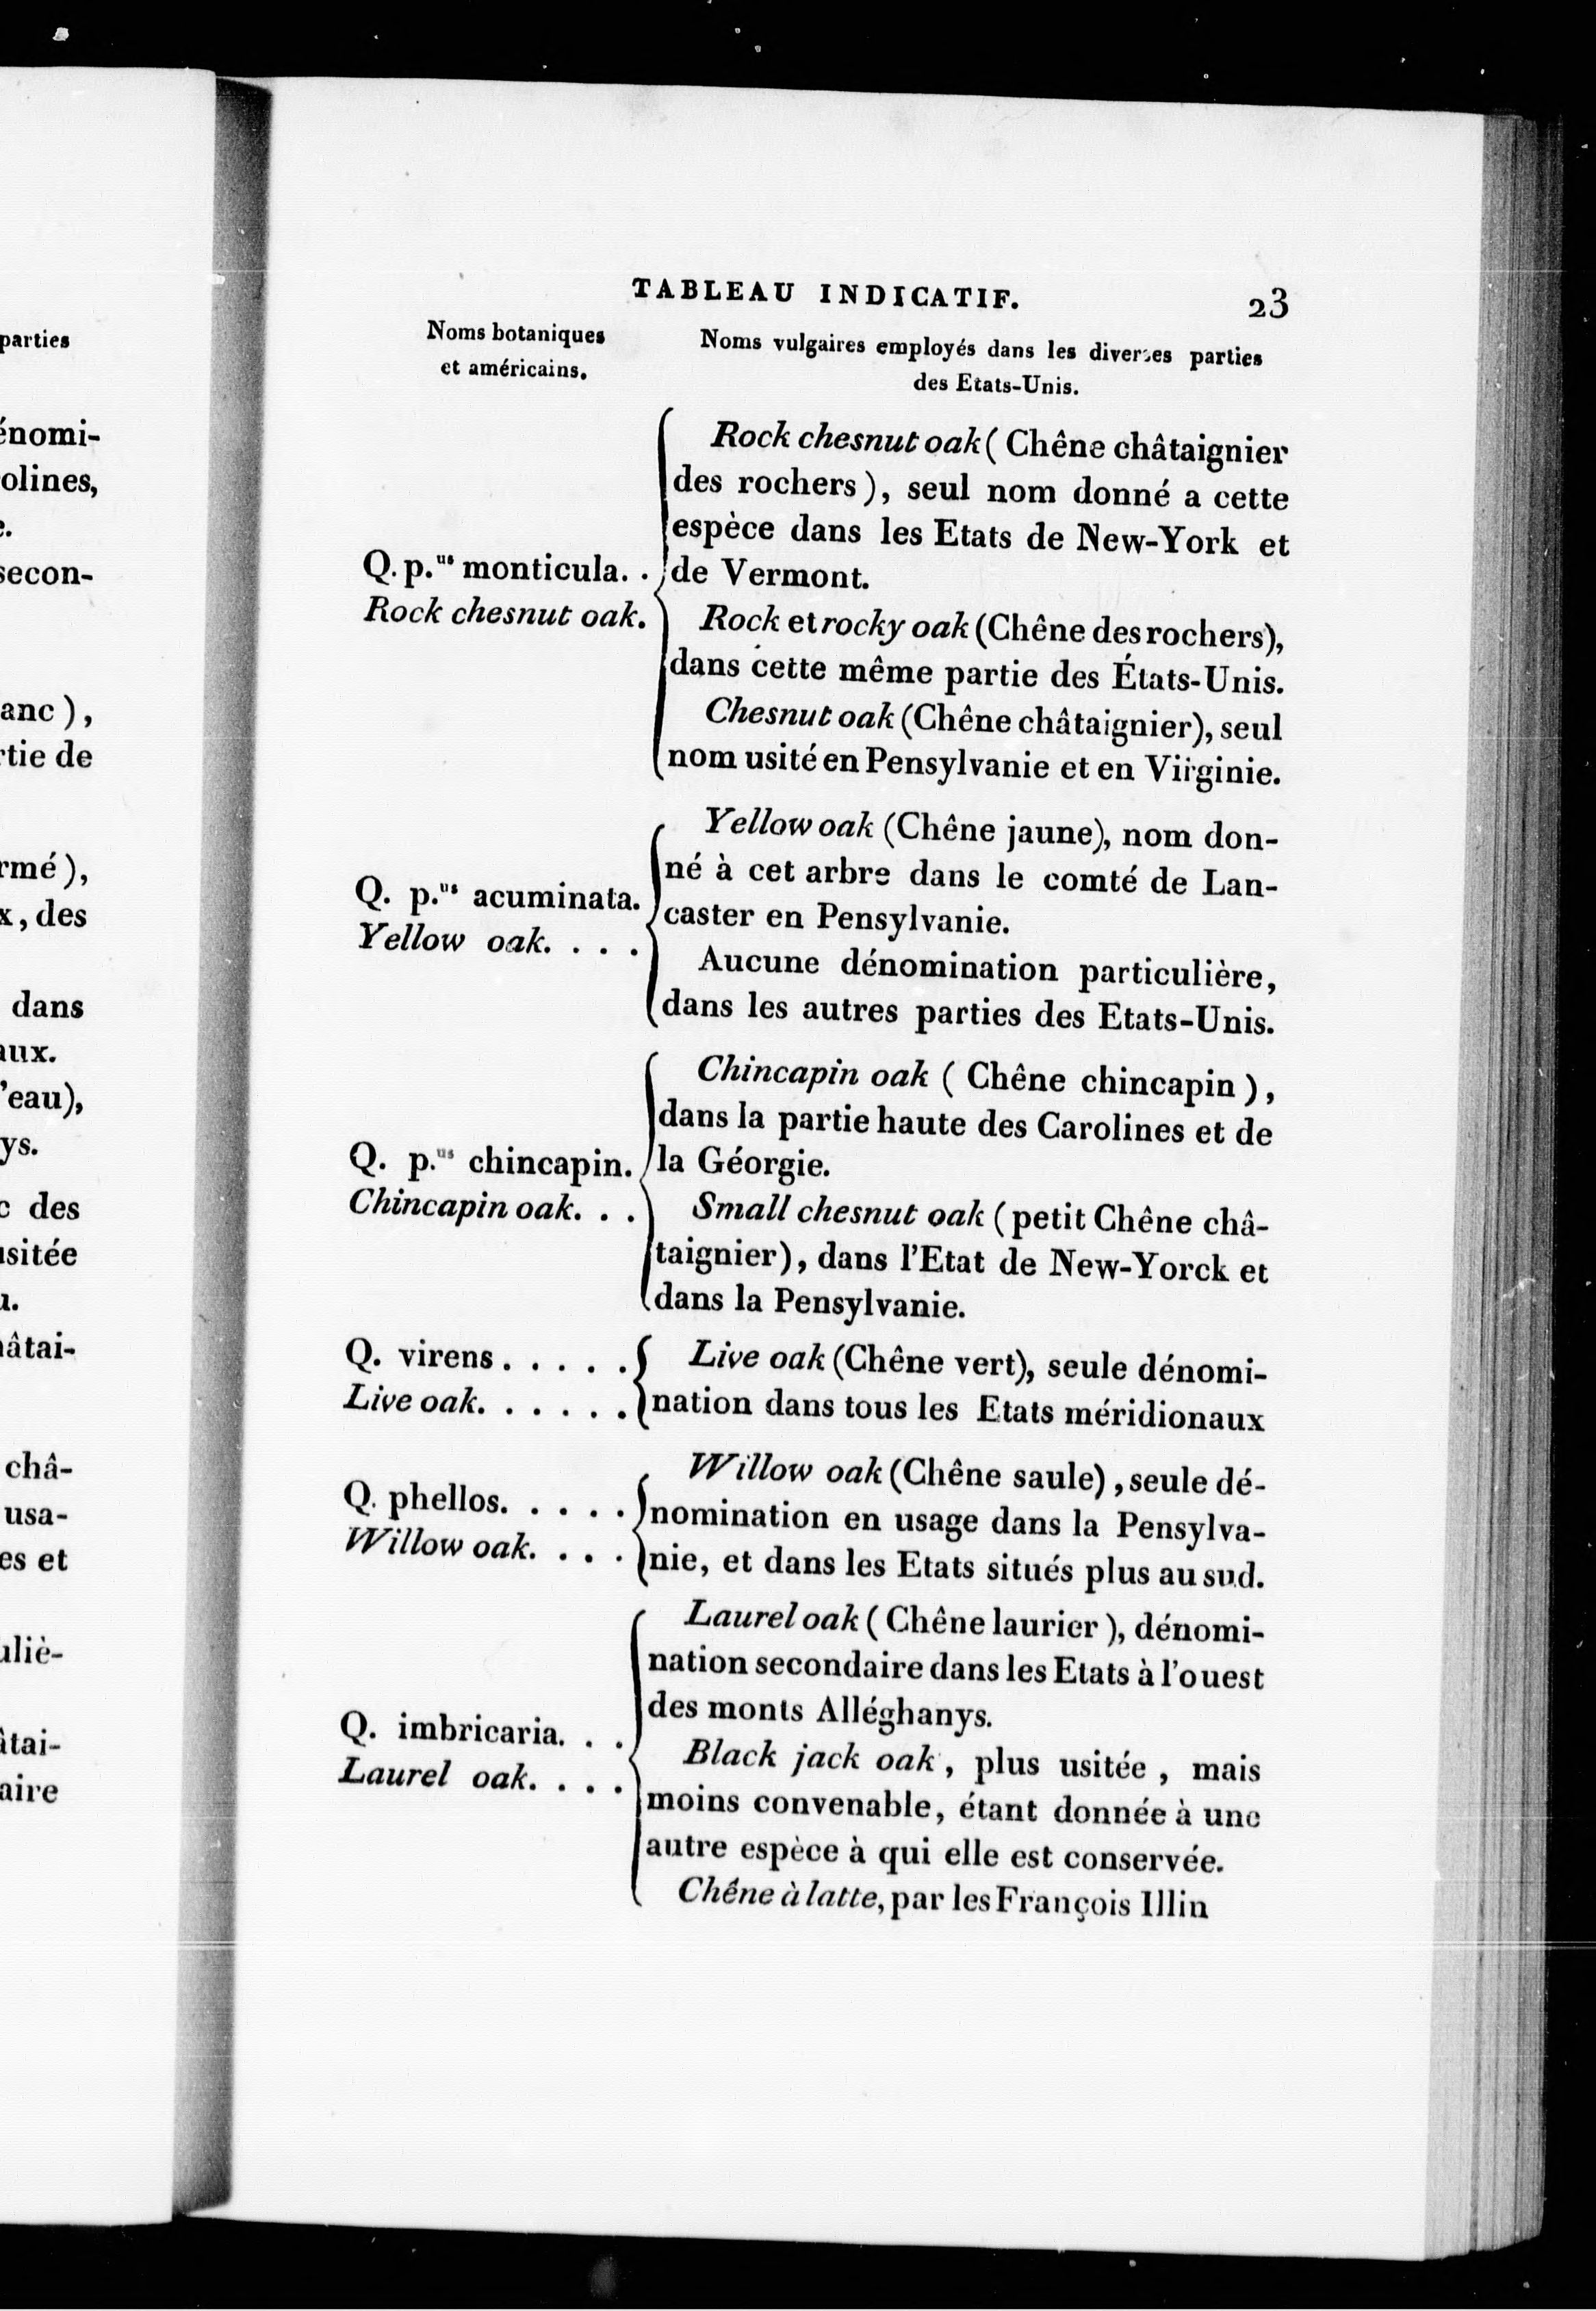 parties
énomi-
olines,
e.
secon-
anc ),
rtie de
rmé),
x, des
dans
aux.
'eau),
ys.
c des
usitée
u.
hâtai-
châ-
usa-
es et
uliè-
âtai-
aire
TABLEAU INDICATIF. 23
Noms botaniques
et américains.
Noms vulgaires employés dans les diverses parties
des Etats-Unis.
Q. p.us monticula. .
Rock chesnut oak.
Rock chesnut oak ( Chêne châtaignier
des rochers ), seul nom donné a cette
espèce dans les Etats de New-York et
de Vermont.
Rock et rocky oak (Chêne des rochers),
dans cette même partie des États-Unis.
Chesnut oak (Chêne châtaignier), seul
nom usité en Pensylvanie et en Virginie.
Q. p.us acuminata.
Yellow oak. . . .
Yellow oak (Chêne jaune), nom don-
né à cet arbre dans le comté de Lan-
caster en Pensylvanie.
Aucune dénomination particulière,
dans les autres parties des Etats-Unis.
Q. p.us chincapin.
Chincapin oak. . .
Chincapin oak ( Chêne chincapin ),
dans la partie haute des Carolines et de
la Géorgie.
Small chesnut oak (petit Chêne châ-
taignier), dans l'Etat de New-Yorck et
dans la Pensylvanie.
Q. virens . . . . .
Live oak. . . . . .
Live oak (Chêne vert), seule dénomi-
nation dans tous les Etats méridionaux
Q. phellos. . . . .
Willow oak. . . .
Willow oak (Chêne saule), seule dé-
nomination en usage dans la Pensylva-
nie, et dans les Etats situés plus au sud.
Q. imbricaria. . .
Laurel oak. . . .
Laurel oak ( Chêne laurier ), dénomi-
nation secondaire dans les Etats à l'ouest
des monts Alléghanys.
Black jack oak, plus usitée, mais
moins convenable, étant donnée à une
autre espèce à qui elle est conservée.
Chêne à latte, par les François Illin